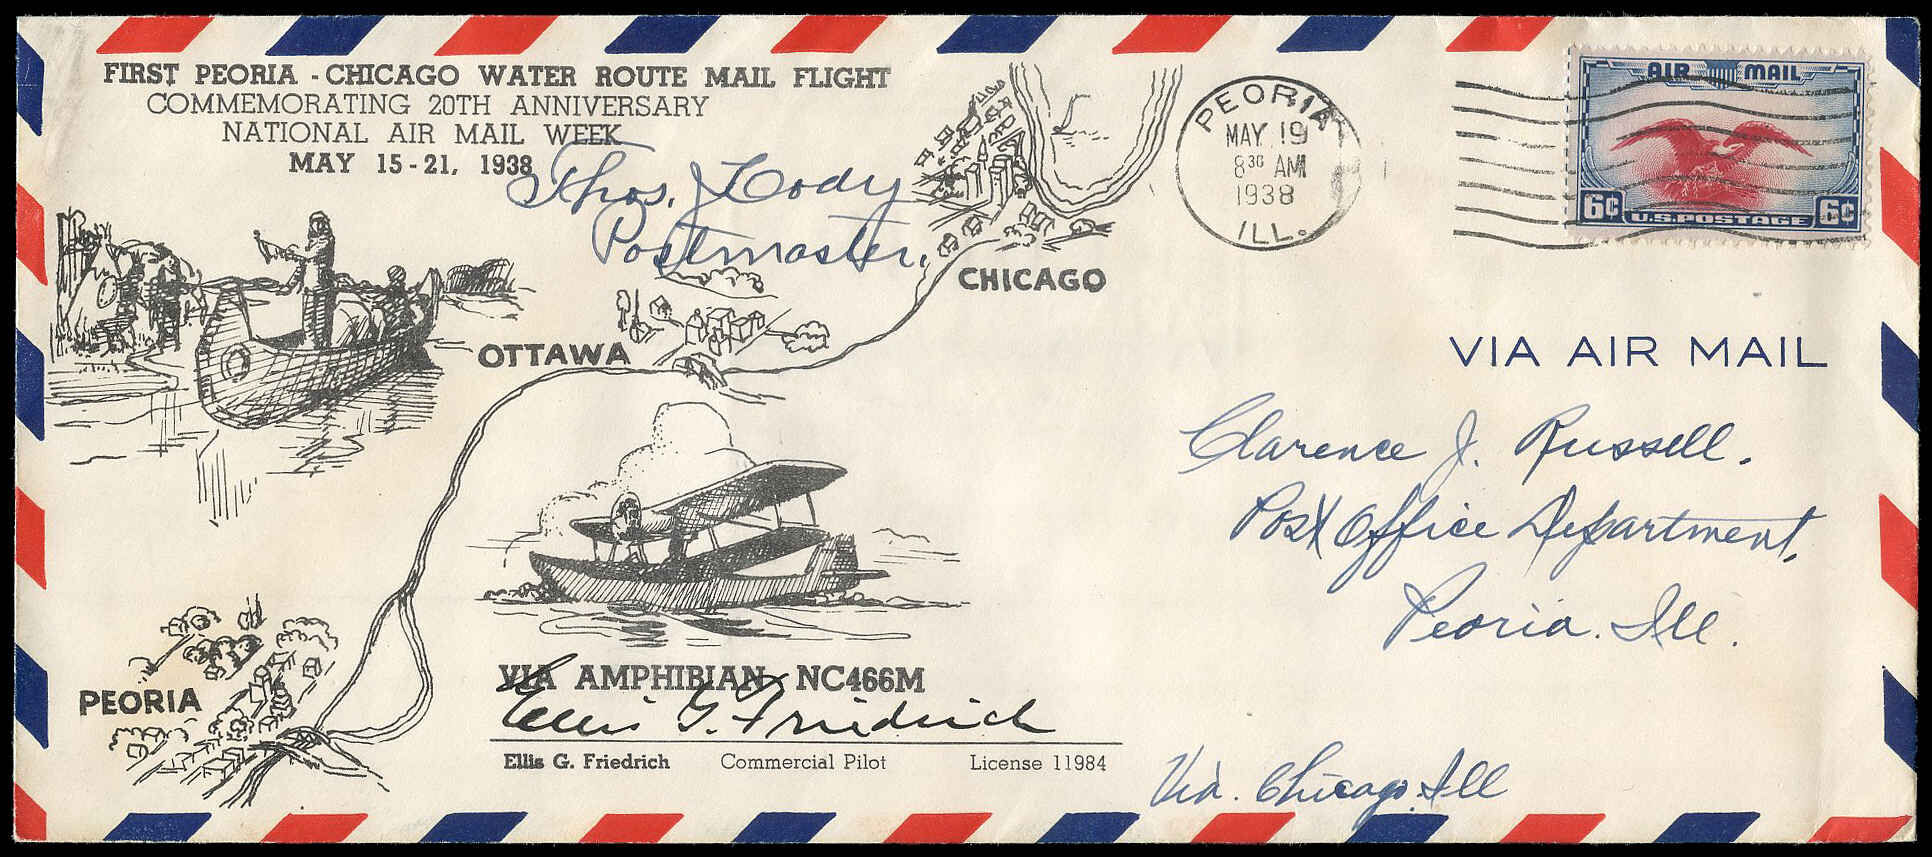 FIRST PEORIA - CHICAGO WATER ROUTE MAIL FLIGHT
COMMEMORATING 20TH ANNIVERSARY
NATIONAL AIR MAIL WEEK
MAY 15-21, 1938
Thos. J Cody
Postmaster.
CHICAGO
OTTAWA
PEORIA
VIA AMPHIBIAN NC466M
Ellis G. Friedrich
Ellis G. Friedrich Commercial Pilot License 11984
PEORIA
MAY 19
8 30 AM
1938
ILL.
AIR MAIL
6¢ U.S. POSTAGE 6¢
VIA AIR MAIL
Clarence J. Russell.
Post Office Department,
Peoria. Ill.
Via. Chicago. Ill